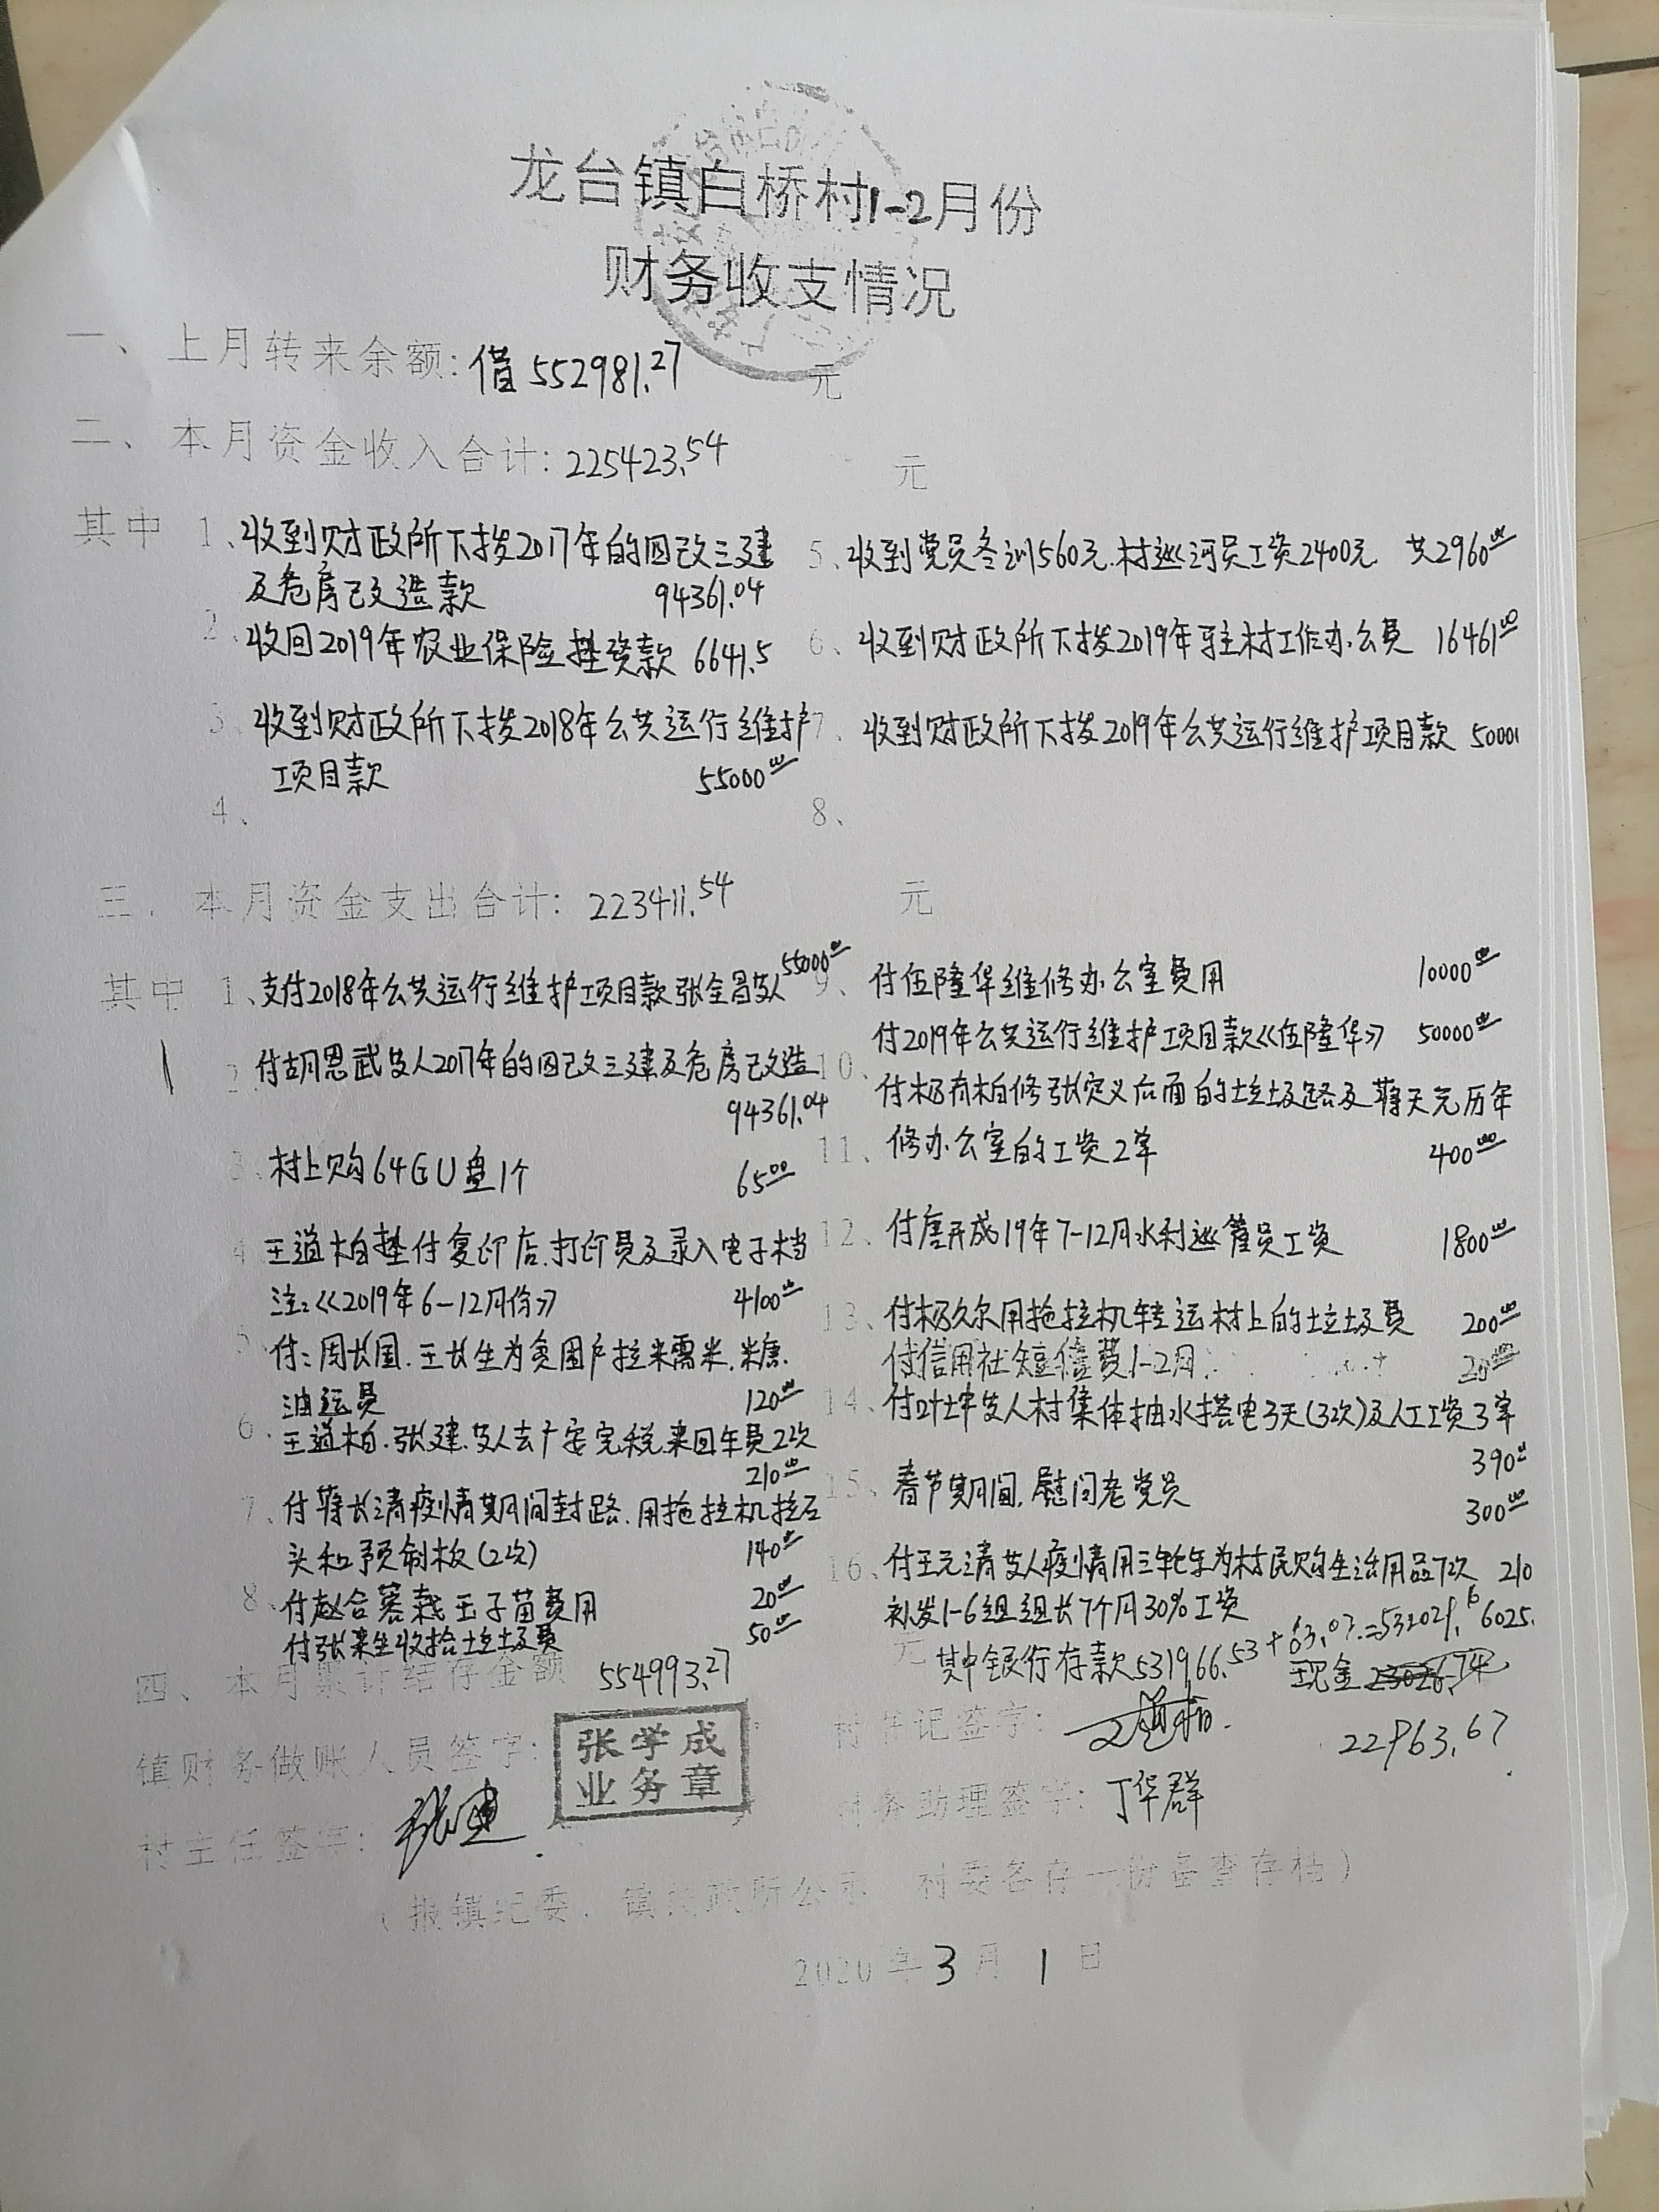 龙台镇白桥村1-2月份
财务收支情况
一、上月转来余额:借552981.27 元
二、本月资金收入合计:225423.54 元
其中 1、收到财政所下拨2017年的四改三建
及危房改造款 94361.04
2、收回2019年农业保险垫资款 6641.5
3、收到财政所下拨2018年公共运行维护
项目款 55000.00
4、
5、收到党员冬训560元.村巡河员工资2400元 共2960.00
6、收到财政所下拨2019年驻村工作办公费 16461.00
7、收到财政所下拨2019年公共运行维护项目款 50000
8、
三、本月资金支出合计:223411.54 元
其中 1、支付2018年公共运行维护项目款张全昌等人 55000.00
2、付胡恩武等人2017年的四改三建及危房改造
94361.04
3、村上购64GU盘1个 65.00
4、王道柏垫付复印店.打印费及录入电子档
注:《2019年6-12月份》 4100.00
5、付:周长国.王长生为贫困户拉来需米.米糠.
油运费 120.00
6、王道柏.张建.等人去广安完税.来回车费2次
210.00
7、付蒋长清疫情期间封路.用拖拉机拉石
头和预制板(2次) 140.00
8、付赵合蓉栽玉子苗费用 20.00
付张来生收拾垃圾费 50.00
9、付伍隆华维修办公室费用 10000.00
10、付2019年公共运行维护项目款《伍隆华》 50000.00
付杨有柏修张定义后面的垃圾路及蒋天元历年
11、修办公室的工资2单 400.00
12、付唐开成19年7-12月水利巡管员工资 1800.00
13、付杨久尔用拖拉机转运村上的垃圾费 200.00
付信用社短信费1-2月 20.00
14、付叶坤等人村集体抽水搭电3天(3次)及人工工资3单
390.00
15、春节期间.慰问老党员 300.00
16、付王元清等人疫情用三轮车为村民购生活用品7次 210
补发1-6组组长7个月30%工资 6025.
四、本月累计结存金额 554993.27 元 其中银行存款531966.53+63.07=532029.6
现金 23026.74
22963.67
镇财务做账人员签字: 张学成
业务章
村书记签字: 王道柏
村主任签字: 张建
财务助理签字: 丁华群
(报镇纪委、镇财政所公示、村委各存一份备查存档)
2020年3月1日